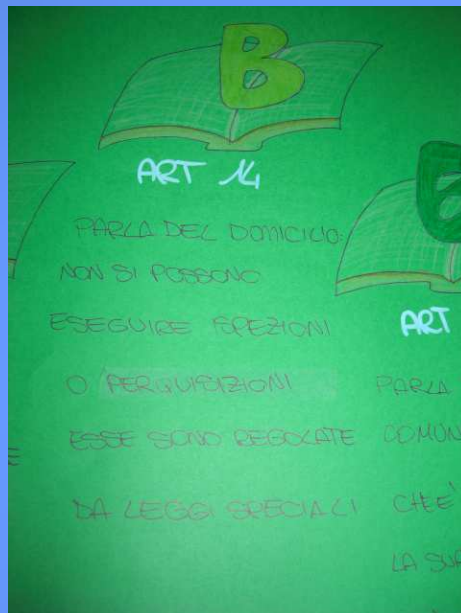 B
ART 14
PARLA DEL DOMICILIO.
NON SI POSSONO
ESEGUIRE ISPEZIONI
O PERQUISIZIONI
ESSE SONO REGOLATE
DA LEGGI SPECIALI
ART
PARLA
COMUN
CHE E'
LA SUA